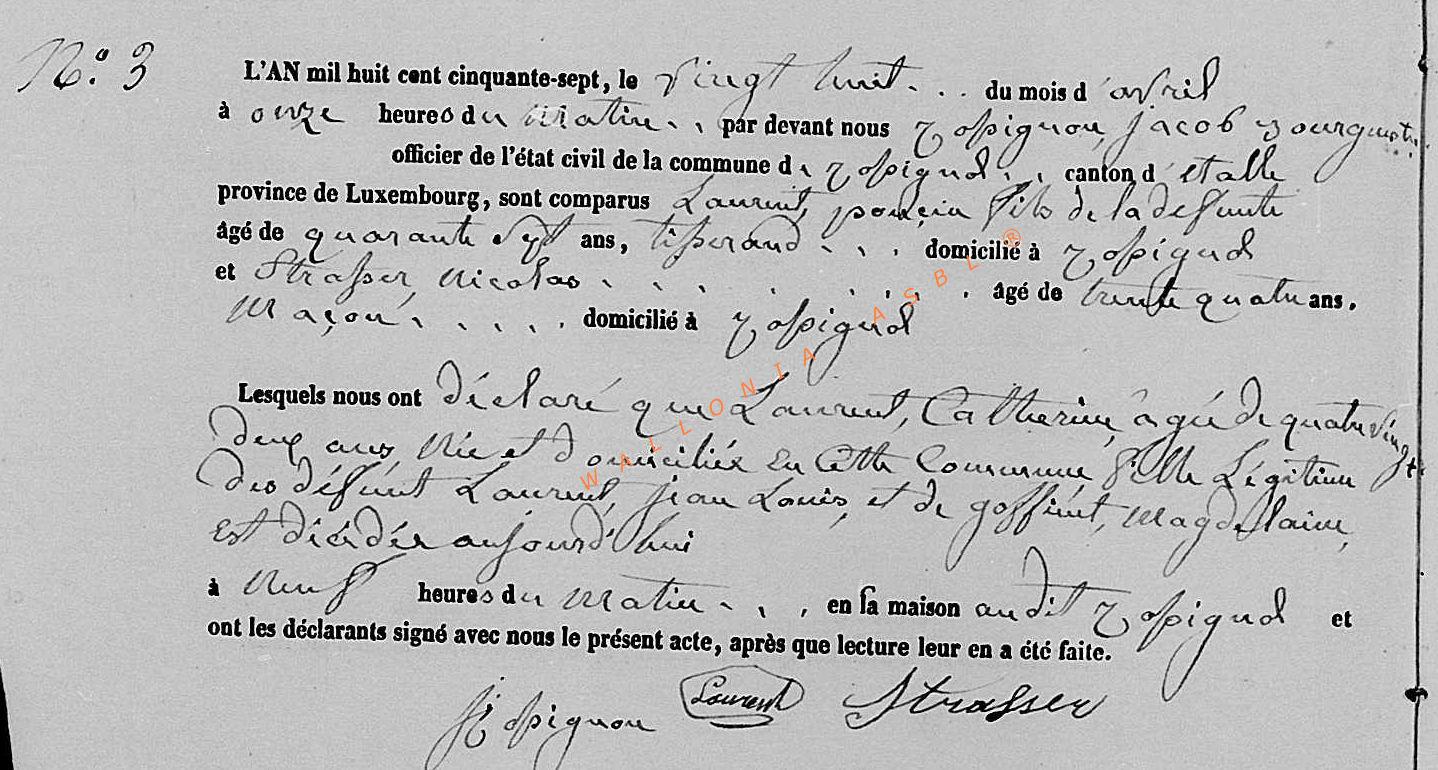 N.º 3
L'AN mil huit cent cinquante-sept, le vingt huit du mois d'avril
à onze heures du matin par devant nous Jacob
officier de l'état civil de la commune d canton d'étalle
province de Luxembourg, sont comparus Laurent, fils de la defunte
âgé de quarante sept ans, tisserand domicilié à
et Strasser, Nicolas âgé de trente quatre ans.
Maçon domicilié à
Lesquels nous ont déclaré que Laurent, Catherine, agée de quatre vingt
deux ans, Née et domiciliée en cette Commune, fille Légitime
des défunt Laurent, jean Louis, et de goffinet, Magdelaine,
Est décédée aujourd'hui
à Neuf heures du matin en sa maison audit et
ont les déclarants signé avec nous le présent acte, après que lecture leur en a été faite.
Laurent Strasser
WALLONIA ASBL ®